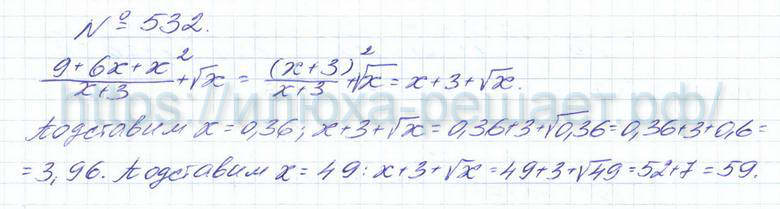 № 532.
(9+6x+x²)/(x+3) + √x = (x+3)²/(x+3) + √x = x+3+√x.
https://илюха-решает.рф/
Подставим x = 0,36; x+3+√x = 0,36+3+√0,36 = 0,36+3+0,6 =
= 3,96. Подставим x = 49: x+3+√x = 49+3+√49 = 52+7 = 59.